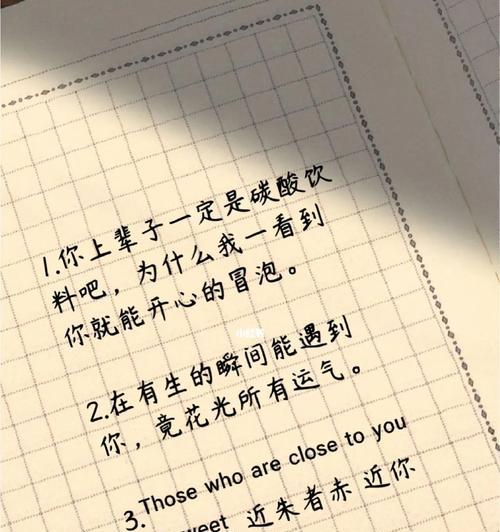 1.你上辈子一定是碳酸饮
料吧，为什么我一看到
你就能开心的冒泡。
小红书
2.在有生的瞬间能遇到
你，竟花光所有运气。
3.Those who are close to you
sweet 近朱者赤 近你